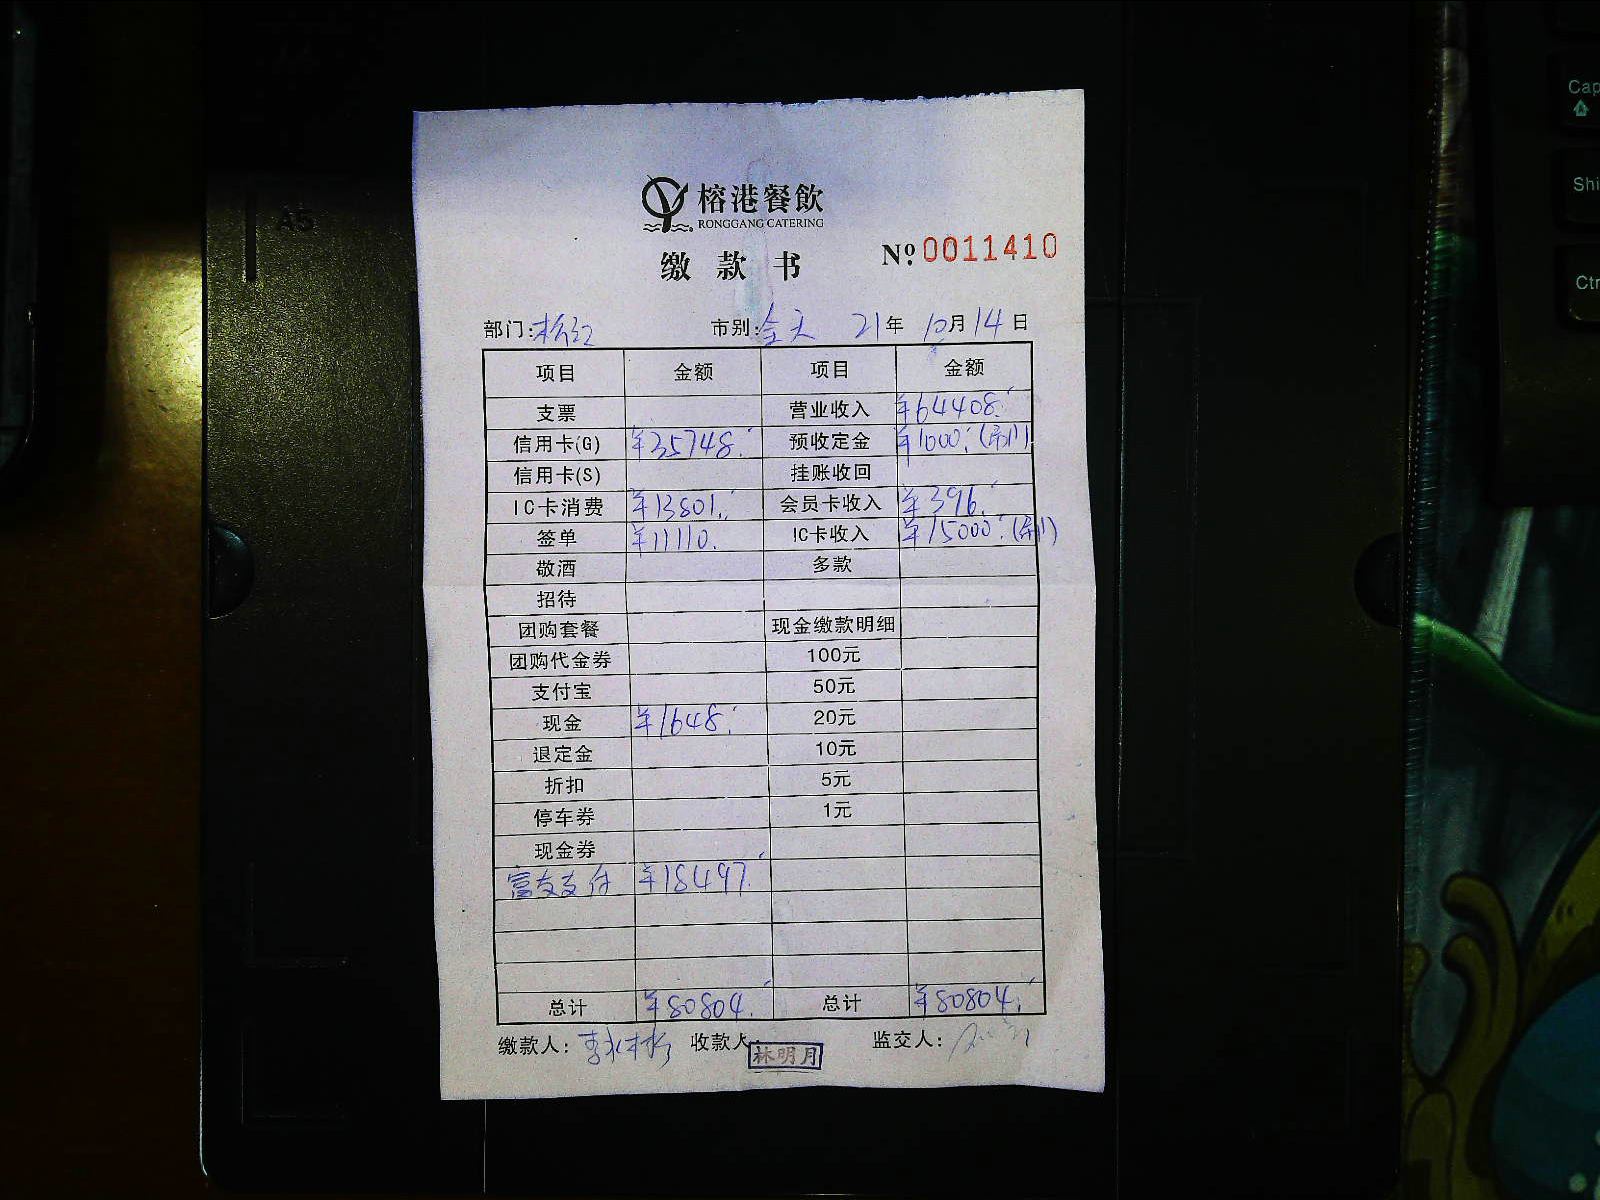 榕港餐飲
RONGGANG CATERING
缴款书 Nº 0011410
部门: 市别:全天 21年 10月 14日
项目 金额 项目 金额
支票 营业收入 ¥64408.
信用卡(G) ¥35748. 预收定金 ¥1000.
信用卡(S) 挂账收回
IC卡消费 ¥13801. 会员卡收入 ¥396.
签单 ¥11110. IC卡收入 ¥15000.
敬酒 多款
招待
团购套餐 现金缴款明细
团购代金券 100元
支付宝 50元
现金 ¥1648. 20元
退定金 10元
折扣 5元
停车券 1元
现金券
富友支付 ¥18497.
总计 ¥80804. 总计 ¥80804.
缴款人: 收款人: 林明月 监交人:
A5
Cap
Shi
Ctr